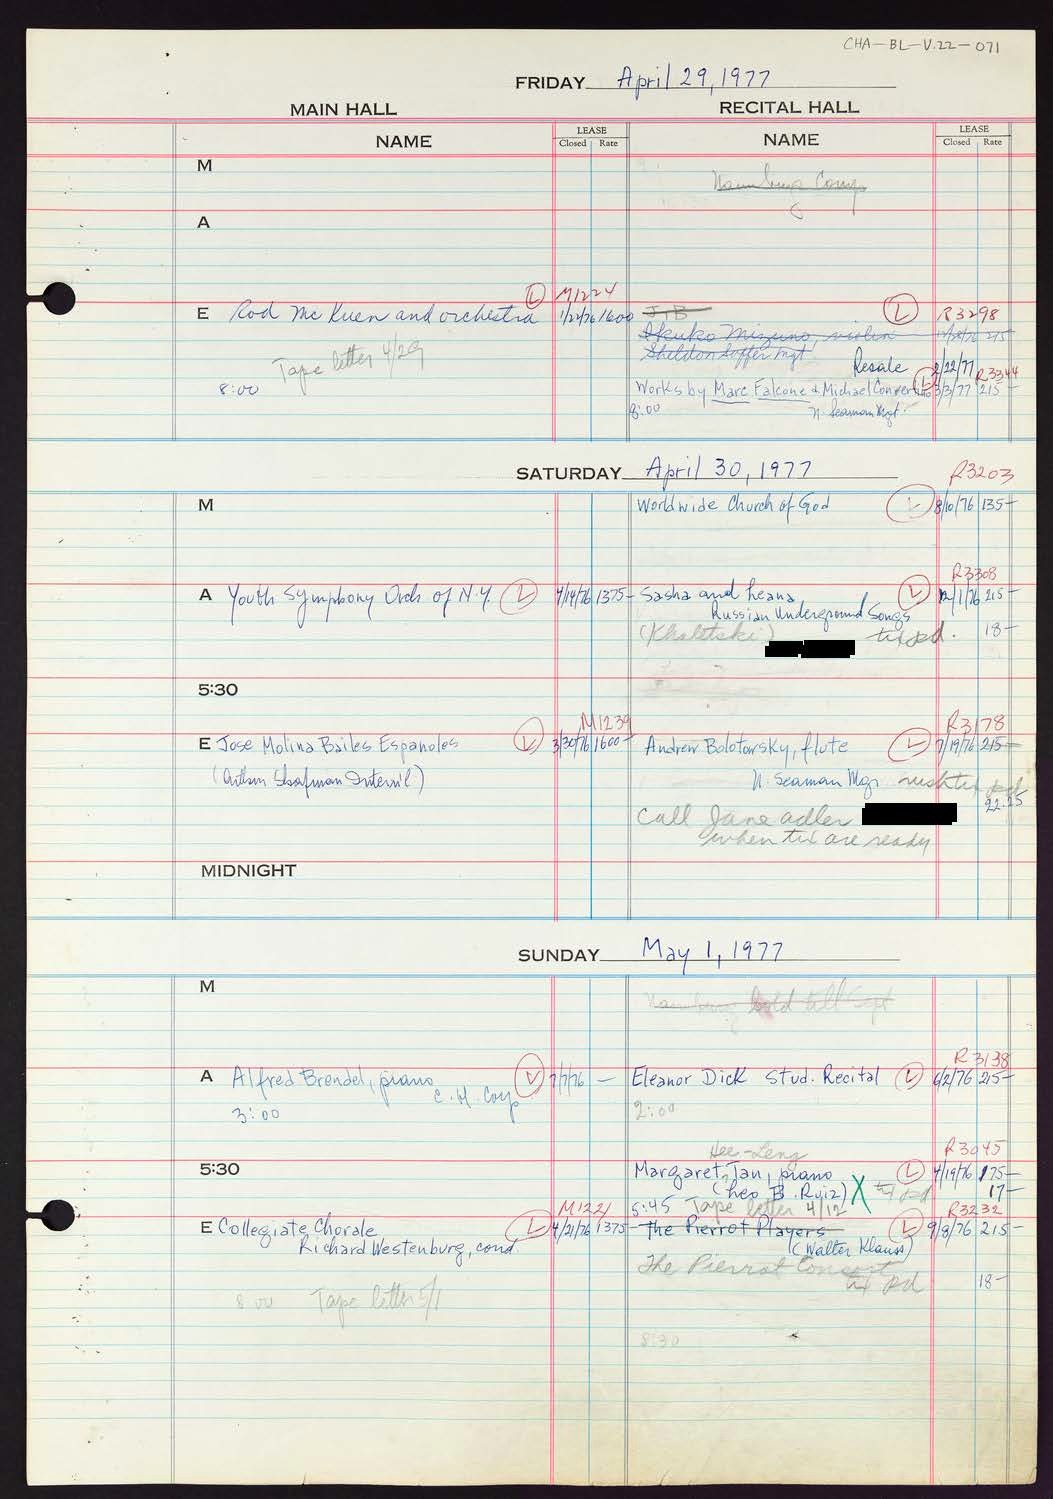 CHA-BL-V.22-071
FRIDAY April 29, 1977
MAIN HALL RECITAL HALL
NAME LEASE Closed Rate NAME LEASE Closed Rate
M
A
M1224
E Rod McKuen and orchestra L 1/22/76 1600
Tape letter 4/29
8:00
JTB L R3298
Ikuko Mizuno, violin 215
Sheldon Soffer Mgt
Resale 2/22/77 R3344
Works by Marc Falcone & Michael Convertino L 3/3/77 215-
8:00 N. Seaman Mgt.
SATURDAY April 30, 1977
R3203
M Worldwide Church of God L 8/10/76 135-
R3308
A Youth Symphony Orch of N.Y. L 4/14/76 1375- Sasha and Leana L 12/1/76 215-
Russian Underground Songs
tix pd. 18-
5:30
M1239 R3178
E Jose Molina Bailes Espanoles L 3/30/76 1600- Andrew Bolotowsky, flute L 7/19/76 215-
(Arthur Shafman Internl) N. Seaman Mgt rush tix pd
22.25
Call Jane adler
when tix are ready
MIDNIGHT
SUNDAY May 1, 1977
M
R3138
A Alfred Brendel, piano L 7/7/76 - Eleanor Dick Stud. Recital L 6/2/76 215-
C.H. Corp
3:00 2:00
Hee-Leng R3045
5:30 Margaret Tan, piano L 4/19/76 175-
(Leo B. Ruiz) X tix pd 17-
5:45 Tape letter 4/12
M1221 R3232
E Collegiate Chorale L 4/21/76 1375- The Pierrot Players L 9/8/76 215-
Richard Westenburg, cond. (Walter Klauss)
The Pierrot Consort
tix pd 18-
8:00 Tape letter 5/1
8:30